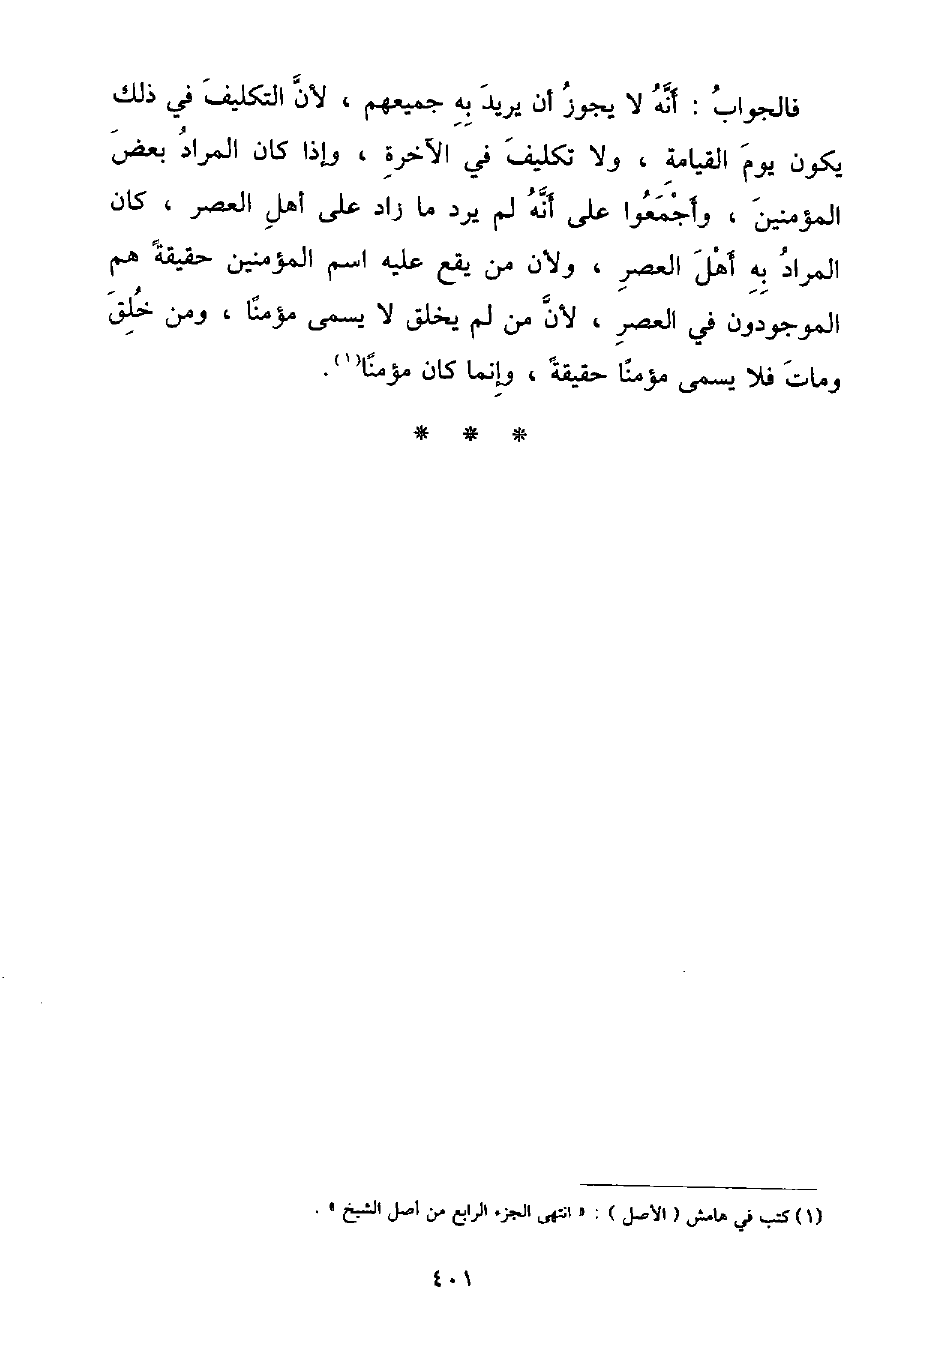 فالجوابُ : أنَّهُ لا يجوزُ أن يريدَ بِهِ جميعهم ، لأنَّ التكليفَ في ذلك
يكون يومَ القيامةِ ، ولا تكليفَ في الآخرةِ ، وإذا كان المرادُ بعضَ
المؤمنينَ ، وأجْمَعُوا على أنَّهُ لم يرد ما زاد على أهلِ العصر ، كان
المرادُ بِهِ أهْلَ العصرِ ، ولأن من يقع عليه اسم المؤمنين حقيقةً هم
الموجودون في العصرِ ، لأنَّ من لم يخلق لا يسمى مؤمنًا ، ومن خُلِقَ
وماتَ فلا يسمى مؤمنًا حقيقةً ، وإنما كان مؤمنًا(١).
* * *
(١) كتب في هامش ( الأصل ) : « انتهى الجزء الرابع من أصل الشيخ » .
٤٠١